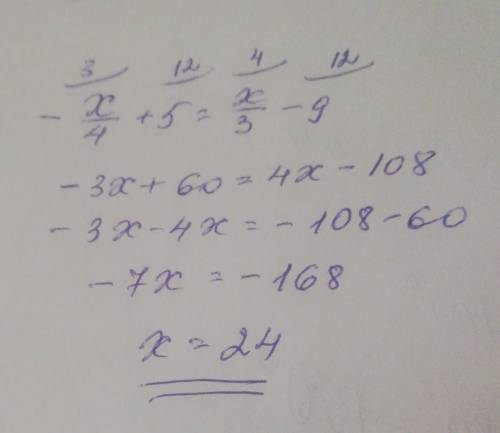 3 12 4 12
- x/4 + 5 = x/3 - 9
- 3x + 60 = 4x - 108
- 3x - 4x = - 108 - 60
- 7x = - 168
x = 24